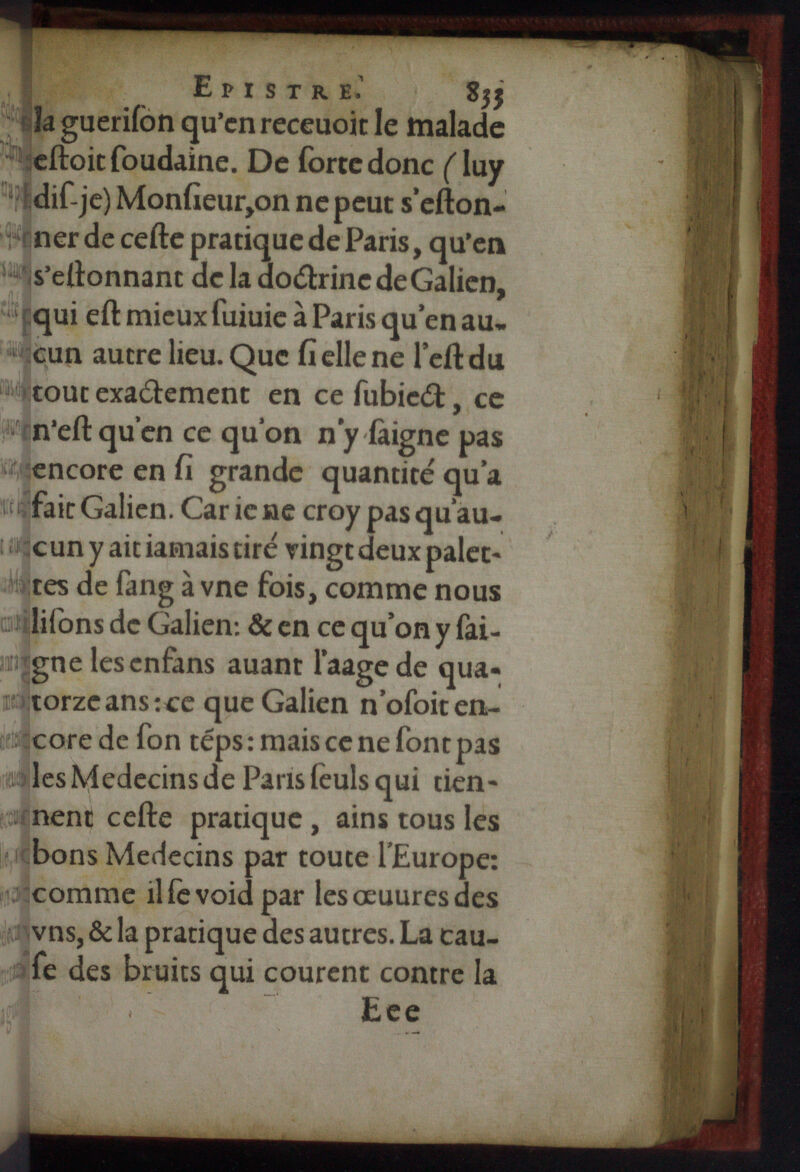 EPISTRE. 833
la gueriſon qu'en receuoit le malade
eſtoit ſoudaine. De ſorte donc (luy
diſ-je) Monſieur, on ne peut s'eſton-
ner de ceſte pratique de Paris, qu'en
s'eſtonnant de la doctrine de Galien,
qui eſt mieux ſuiuie à Paris qu'en au-
cun autre lieu. Que ſi elle ne l'eſt du
tout exactement en ce ſubiect, ce
n'eſt qu'en ce qu'on n'y ſaigne pas
encore en ſi grande quantité qu'a
fait Galien. Car ie ne croy pas qu'au-
cun y ait iamais tiré vingt deux palet-
tes de ſang à vne fois, comme nous
liſons de Galien: & en ce qu'on y ſai-
gne les enfans auant l'aage de qua-
torze ans: ce que Galien n'oſoit en-
core de ſon téps: mais ce ne ſont pas
les Medecins de Paris ſeuls qui tien-
nent ceſte pratique, ains tous les
bons Medecins par toute l'Europe:
comme il ſe void par les œuures des
vns, & la pratique des autres. La cau-
ſe des bruits qui courent contre la
Eee